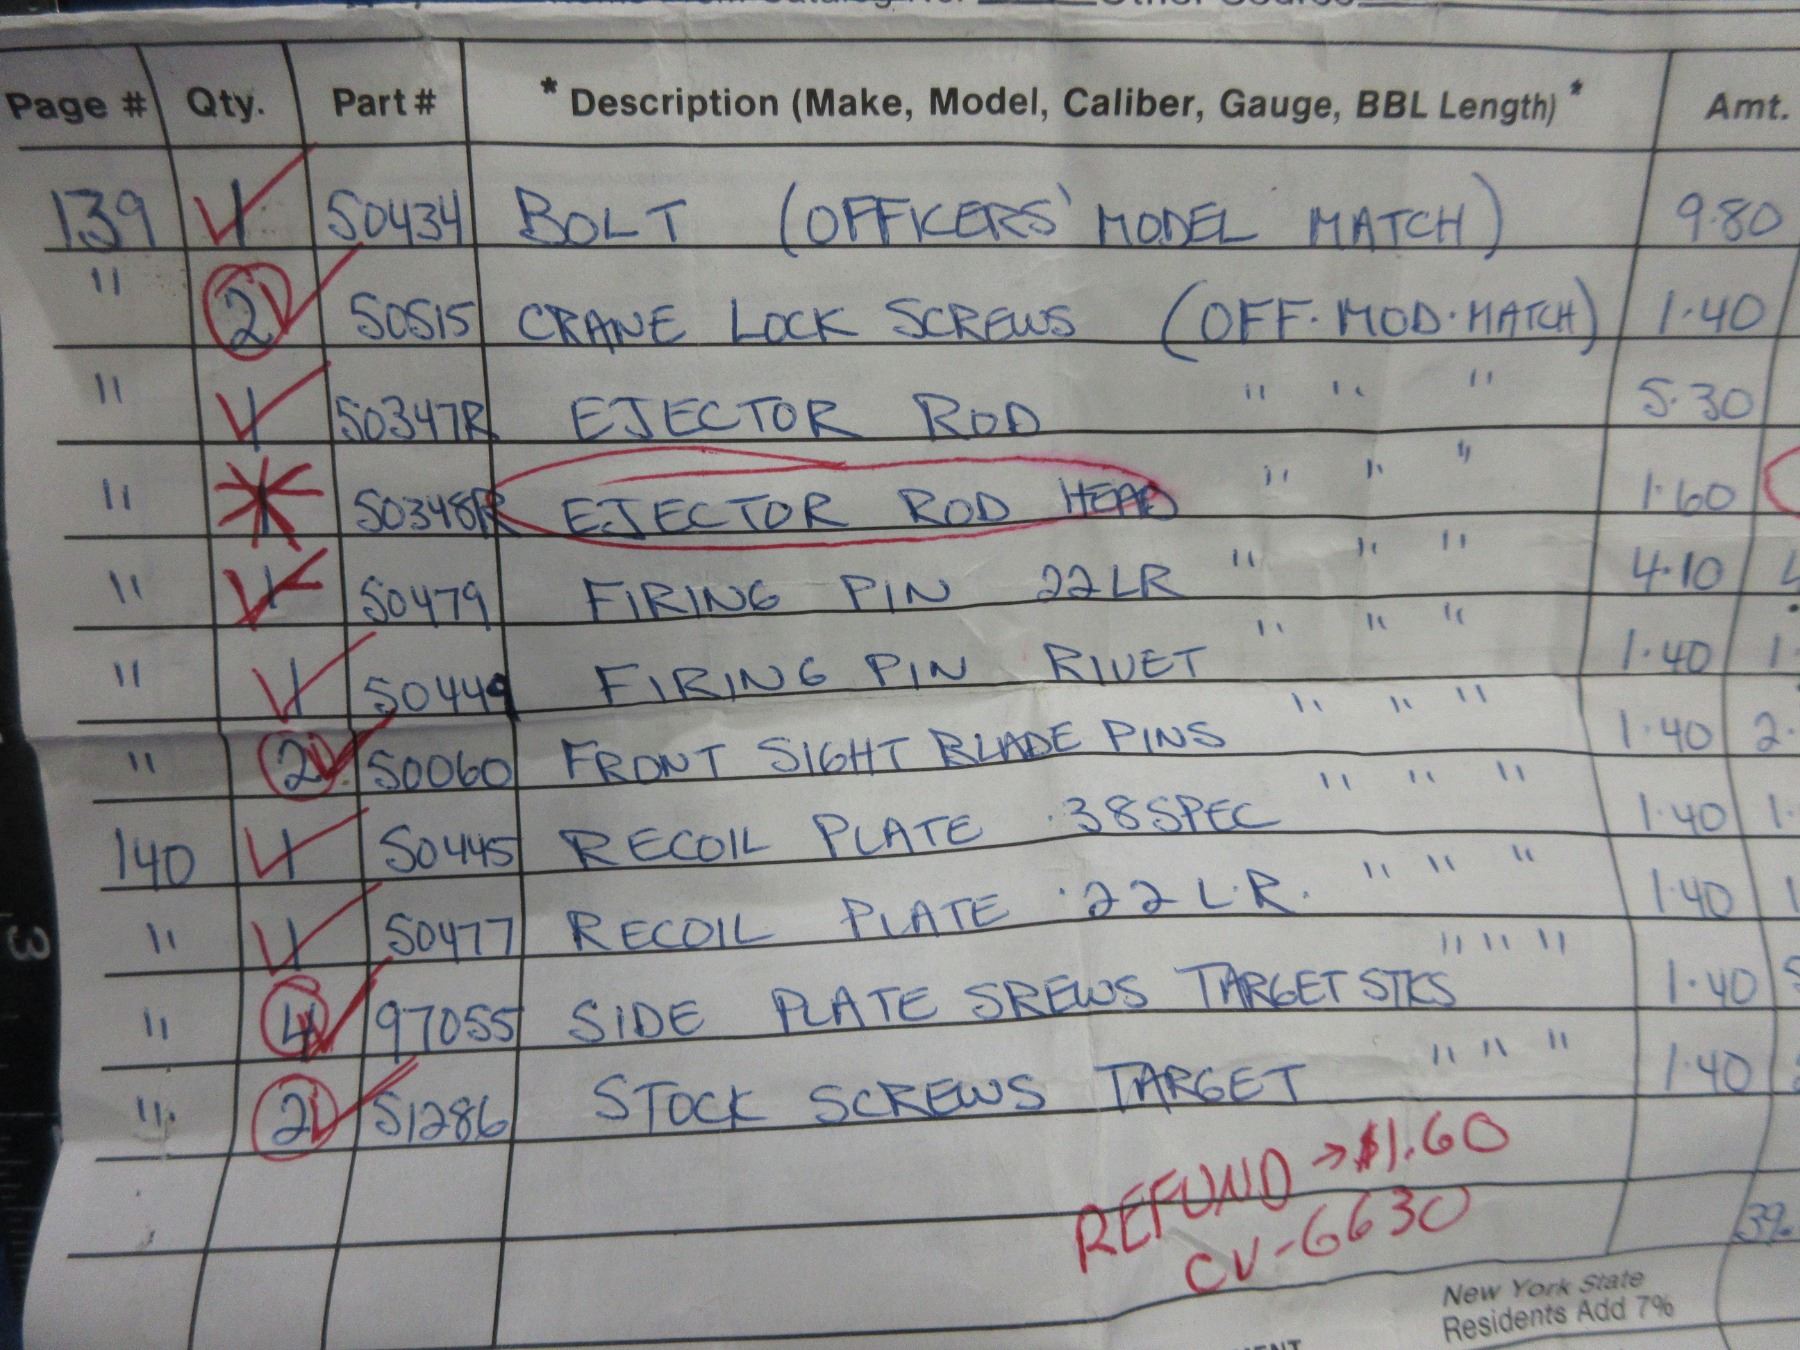 Page # Qty. Part # * Description (Make, Model, Caliber, Gauge, BBL Length) * Amt.
139 1 50434 BOLT (OFFICERS' MODEL MATCH) 9.80
" 2 50515 CRANE LOCK SCREWS (OFF. MOD. MATCH) 1.40
" 1 50347R EJECTOR ROD " " " 5.30
" 1 50348R EJECTOR ROD HEAD " " " 1.60
" 1 50479 FIRING PIN 22LR " " " 4.10
" 1 50449 FIRING PIN RIVET " " " 1.40 1.
" 2 50060 FRONT SIGHT BLADE PINS " " " 1.40 2.
140 1 50445 RECOIL PLATE .38SPEC " " " 1.40 1.
" 1 50477 RECOIL PLATE .22 L.R. " " " 1.40
" 4 97055 SIDE PLATE SREWS TARGET STKS " " " 1.40
" 2 51286 STOCK SCREWS TARGET " " " 1.40
REFUND → $1.60
CV-6630
39.
New York State
Residents Add 7%
3